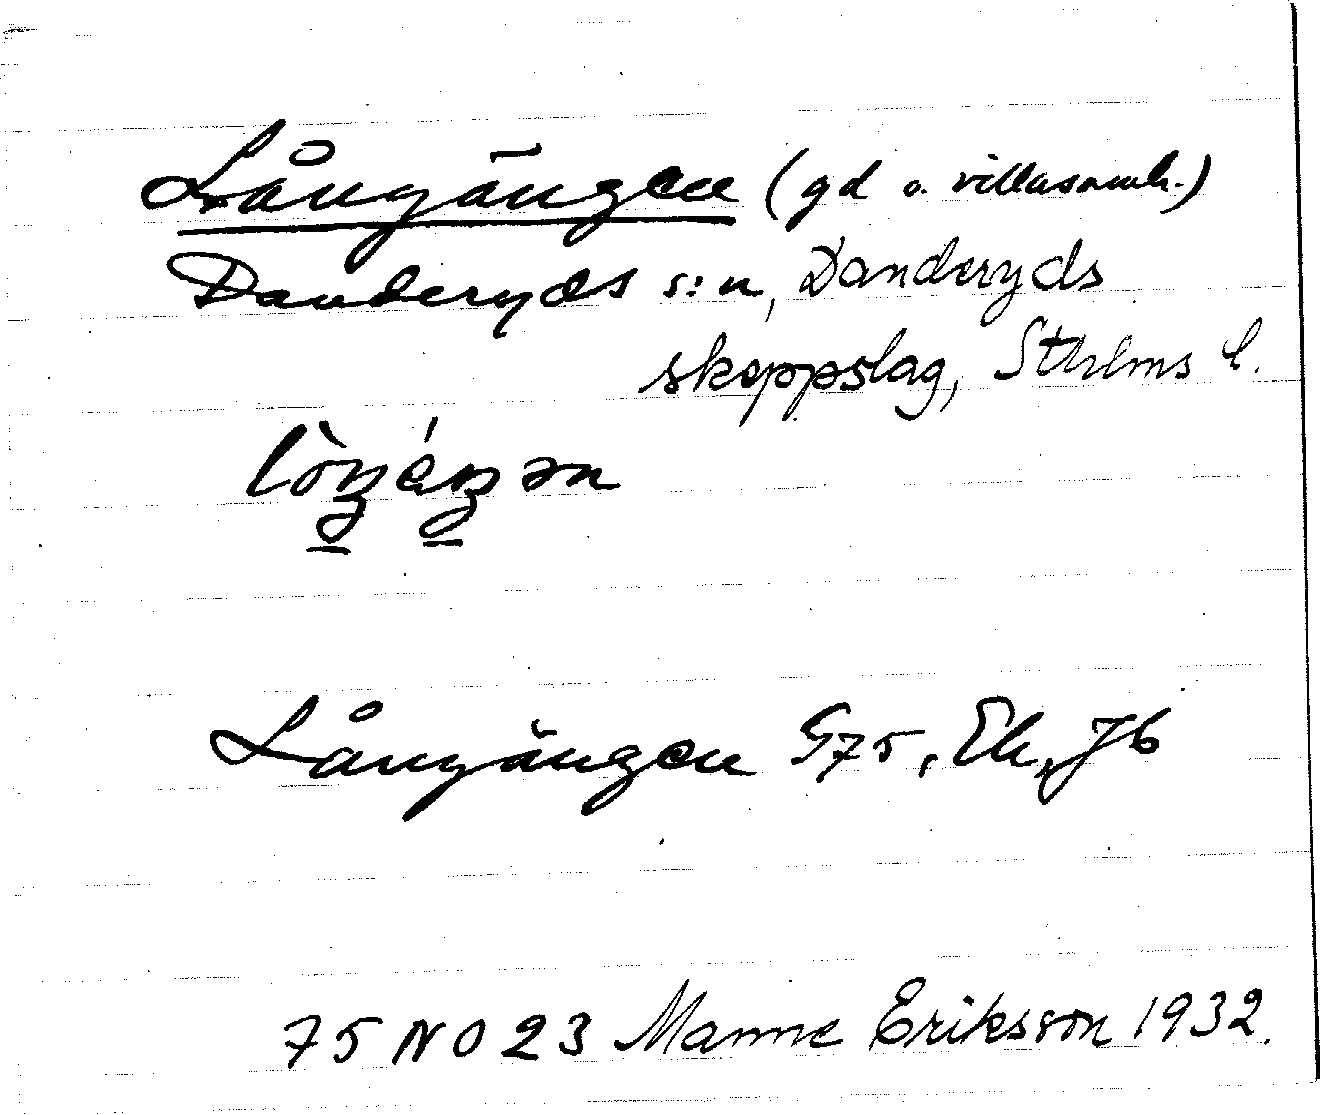 Långängen (gd o. villasamh.)
Danderyds s:n, Danderyds
skeppslag, Sthlms l.
Långängen G75, Ek, Jb
75 NO 23 Manne Eriksson 1932.